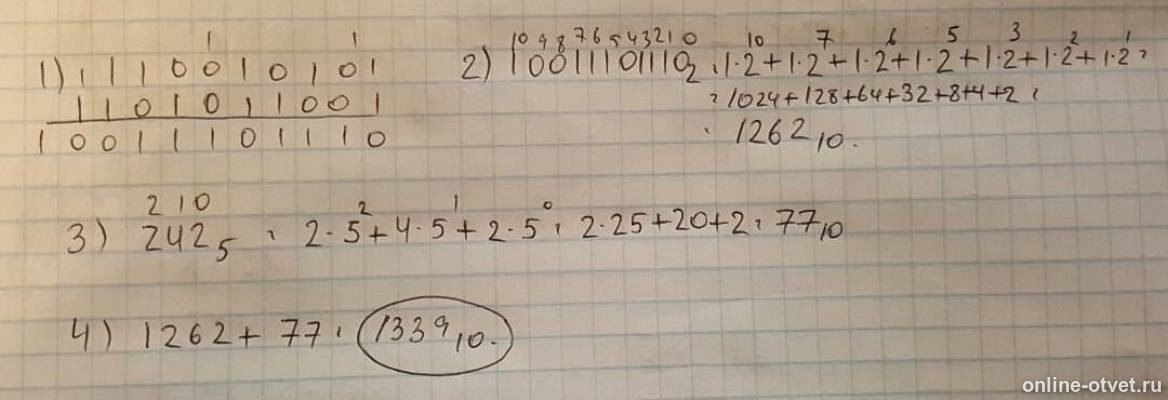 1 1
1) 1110010101
1101011001
10011101110
10 9 8 7 6 5 4 3 2 1 0
2) 10011101110₂ = 1·2¹⁰+1·2⁷+1·2⁶+1·2⁵+1·2³+1·2²+1·2¹ =
= 1024+128+64+32+8+4+2 =
= 1262₁₀.
2 1 0
3) 242₅ = 2·5²+4·5¹+2·5⁰ = 2·25+20+2 = 77₁₀
4) 1262+77 = 1339₁₀.
online-otvet.ru